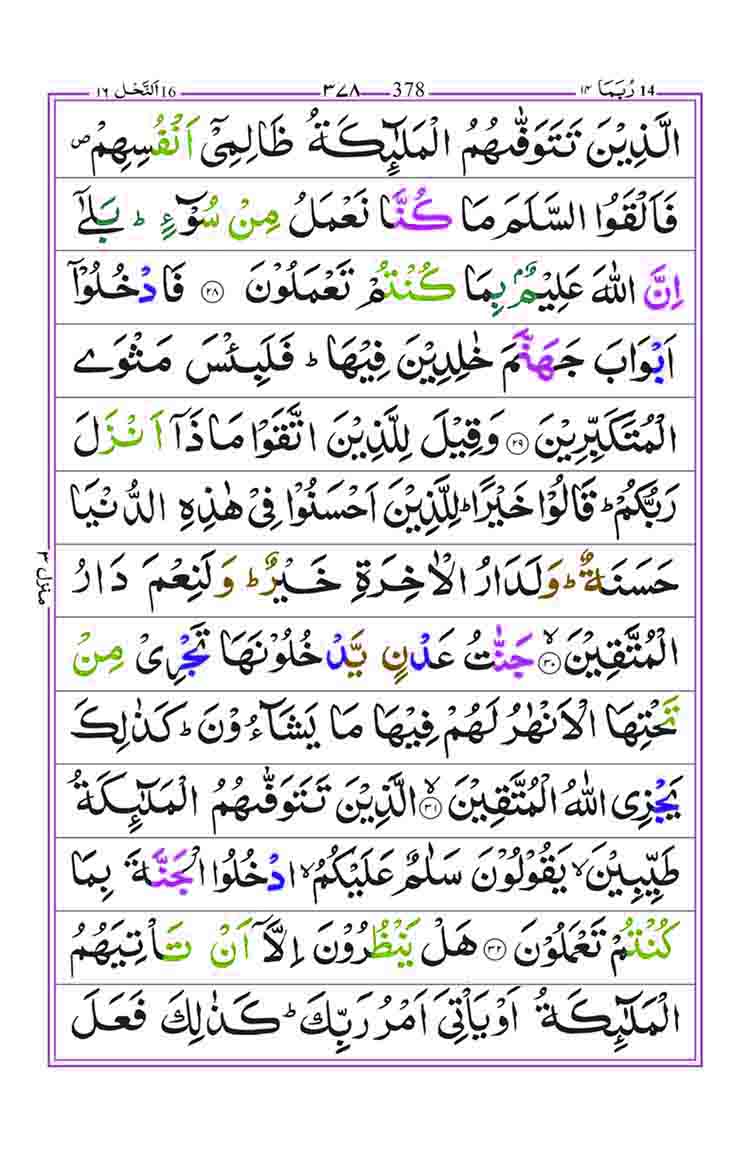 14 رُبَمَا ١٤ 378 ٣٧٨ 16 اَلنَّحْل ١٦
الَّذِيْنَ تَتَوَفّٰىهُمُ الْمَلٰٓئِكَةُ ظَالِمِيْۤ اَنْفُسِهِمْ ص
فَاَلْقَوُا السَّلَمَ مَا كُنَّا نَعْمَلُ مِنْ سُوْٓءٍ ؕ بَلٰٓى
اِنَّ اللّٰهَ عَلِيْمٌۢ بِمَا كُنْتُمْ تَعْمَلُوْنَ ۝٢٨ فَادْخُلُوْۤا
اَبْوَابَ جَهَنَّمَ خٰلِدِيْنَ فِيْهَا ؕ فَلَبِئْسَ مَثْوَى
الْمُتَكَبِّرِيْنَ ۝٢٩ وَقِيْلَ لِلَّذِيْنَ اتَّقَوْا مَاذَاۤ اَنْزَلَ
رَبُّكُمْ ؕ قَالُوْا خَيْرًا ؕ لِلَّذِيْنَ اَحْسَنُوْا فِيْ هٰذِهِ الدُّنْيَا
حَسَنَةٌ ؕ وَلَدَارُ الْاٰخِرَةِ خَيْرٌ ؕ وَلَنِعْمَ دَارُ
الْمُتَّقِيْنَ ۝٣٠ۙ جَنّٰتُ عَدْنٍ يَّدْخُلُوْنَهَا تَجْرِيْ مِنْ
تَحْتِهَا الْاَنْهٰرُ لَهُمْ فِيْهَا مَا يَشَآءُوْنَ ؕ كَذٰلِكَ
يَجْزِى اللّٰهُ الْمُتَّقِيْنَ ۝٣١ۙ الَّذِيْنَ تَتَوَفّٰىهُمُ الْمَلٰٓئِكَةُ
طَيِّبِيْنَ ۙ يَقُوْلُوْنَ سَلٰمٌ عَلَيْكُمُ ۙ ادْخُلُوا الْجَنَّةَ بِمَا
كُنْتُمْ تَعْمَلُوْنَ ۝٣٢ هَلْ يَنْظُرُوْنَ اِلَّاۤ اَنْ تَاْتِيَهُمُ
الْمَلٰٓئِكَةُ اَوْ يَاْتِيَ اَمْرُ رَبِّكَ ؕ كَذٰلِكَ فَعَلَ
منزل ٣